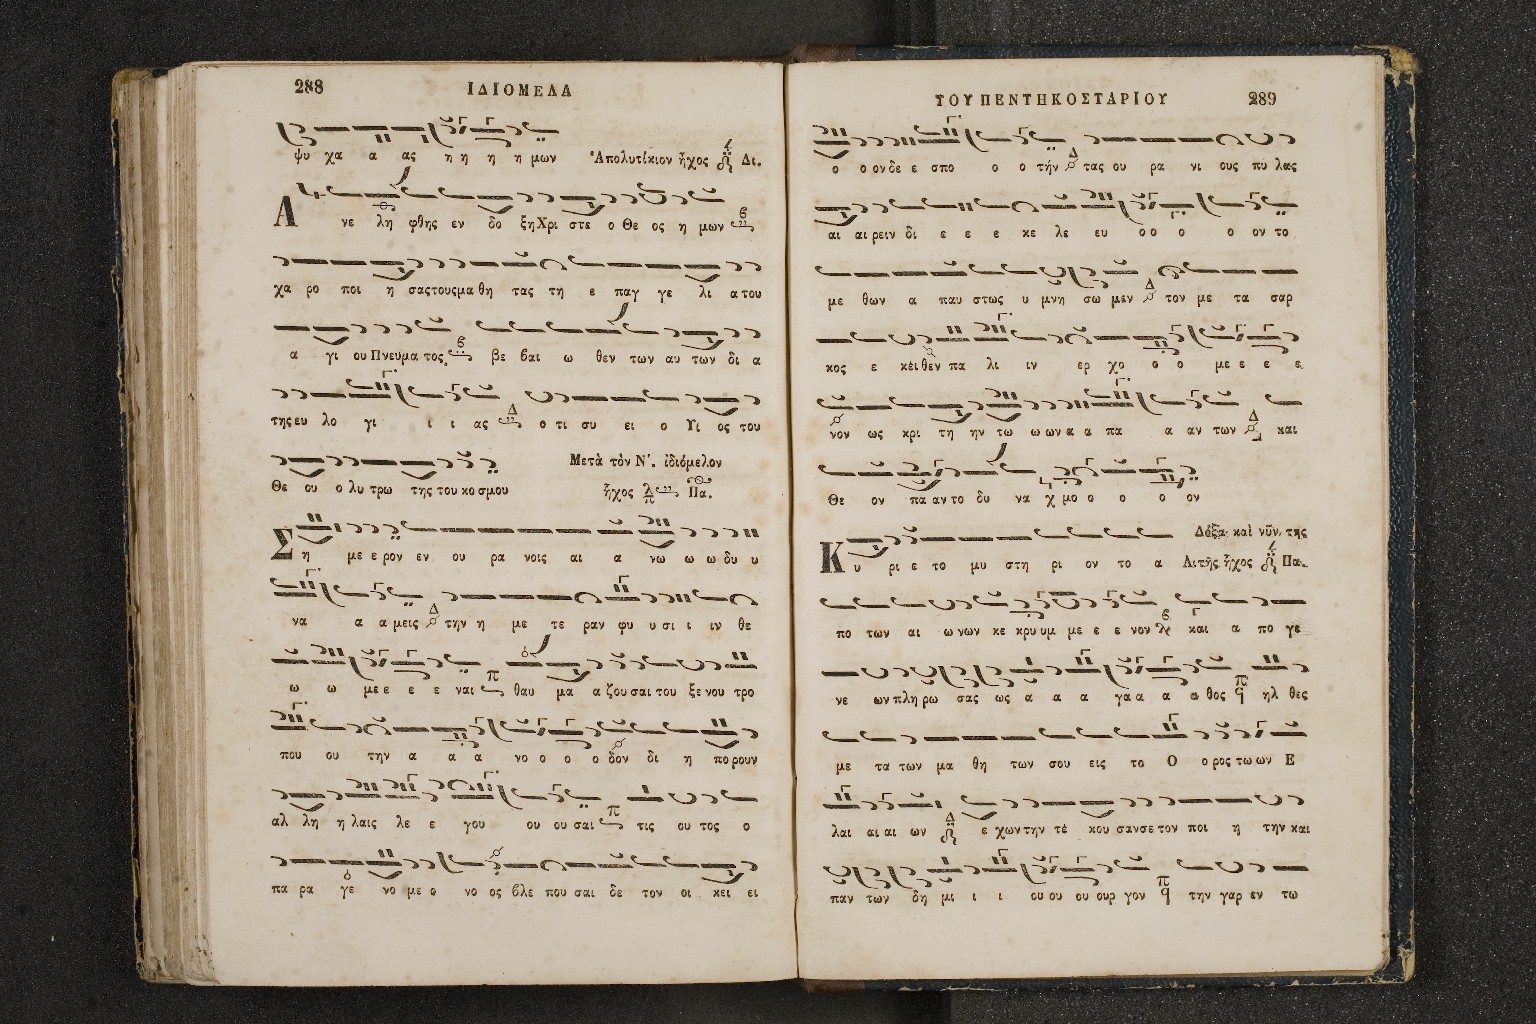 288 ΙΔΙΟΜΕΛΑ
ψυ χα α ας η η η η μων Ἀπολυτίκιον ἦχος Δι.
Α νε λη φθης εν δο ξη Χρι στε ο Θε ος η μων
χα ρο ποι η σας τους μα θη τας τη ε παγ γε λι α του
α γι ου Πνευμα τος βε βαι ω θεν των αυ των δι α
της ευ λο γι ι ι ας ο τι συ ει ο Υι ος του
Θε ου ο λυ τρω της του κο σμου Μετὰ τὸν Ν΄. ἰδιόμελον
ἦχος Πα.
Σ η με ε ρον εν ου ρα νοις αι α νω ω ω δυ υ
να α α μεις την η με τε ραν φυ υ σι ι ιν θε
ω ω με ε ε ε ναι θαυ μα α ζου σαι του ξε νου τρο
που ου την α α α νο ο ο ο δον δι η πο ρουν
αλ λη η λαις λε ε γου ου ου σαι τις ου τος ο
πα ρα γε νο με ο νο ος βλε που σαι δε τον οι κει ει
ΤΟΥ ΠΕΝΤΗΚΟΣΤΑΡΙΟΥ 289
ο ο ον δε ε σπο ο ο τήν τας ου ρα νι ους πυ λας
αι αι ρειν δι ε ε ε κε λε ευ ο ο ο ο ον το
με θων α παυ στως υ μνη σω μεν τον με τα σαρ
κος ε κεὶ θεν πα λι ιν ερ χο ο ο με ε ε ε
νον ως κρι τη ην τω ω ων α α πα α αν των και
Θε ον πα αν το δυ να χ μο ο ο ο ον
Δόξα: καὶ νῦν, της
Κ υ ρι ε το μυ στη ρι ον το α Λιτῆς ἦχος Πα.
πο των αι ω νων κε κρυ υμ με ε ε νον και α πο γε
νε ων πλη ρω σας ως α α α γα α α α θος ηλ θες
με τα των μα θη των σου εις το Ο ο ρος τω ων Ε
λαι αι αι ων ε χων την τέ κου σαν σε τον ποι η την και
παν των δη μι ι ι ου ου ου ουρ γον την γαρ εν τω